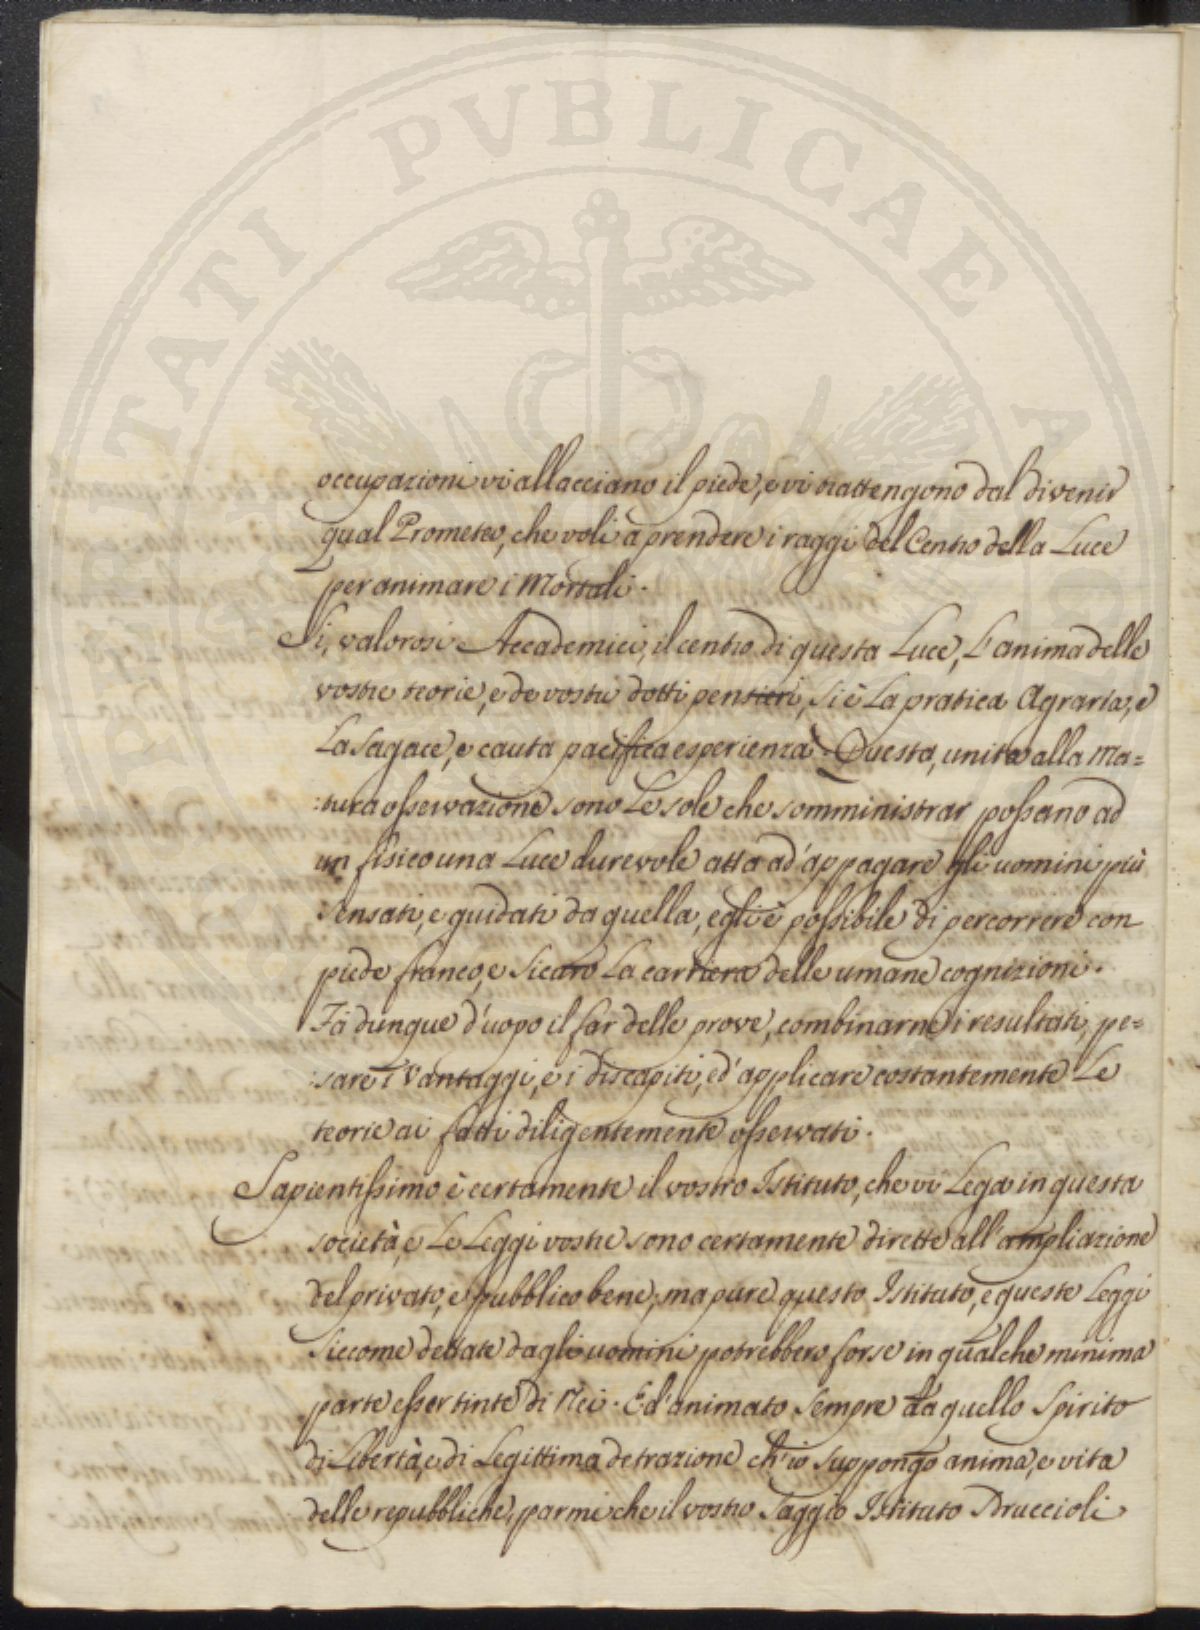 PROSPERITATI PVBLICAE AVGENDAE
occupazioni vi allacciano il piede, e vi trattengono dal divenir
qual Prometeo, che voli a prendere i raggi del Centro della Luce
per animare i Mortali.
Sì, valorosi Accademici, il centro di questa Luce, L'anima delle
vostre teorie, e de vostri dotti pensieri, si è La pratica Agraria, e
La sagace, e cauta pacifica esperienza. Questa, unita alla Ma=
:tura osservazione sono Le sole che somministrar possano ad
un fisico una Luce durevole atta ad'appagare gli uomini più
sensati, e guidati da quella, egli è possibile di percorrere con
piede franco, e sicuro La carriera delle umane cognizioni.
Fà dunque d'uopo il far delle prove, combinarne i resultati, pe=
:sare i Vantaggi, e i discapiti, ed'applicare costantemente Le
teorie ai fatti diligentemente osservati.
Sapientissimo è certamente il vostro Istituto, che vi Lega in questa
società, e Le Leggi vostre sono certamente dirette all'ampliazione
del privato, e pubblico bene; ma pure questo Istituto, e queste Leggi
siccome dettate dagli uomini potrebbero forse in qualche minima
parte esser tinte di Nei. Ed'animato sempre da quello Spirito
di Libertà, e di Legittima detrazione ch'io suppongo anima, e vita
delle repubbliche, parmi che il vostro saggio Istituto sdruccioli